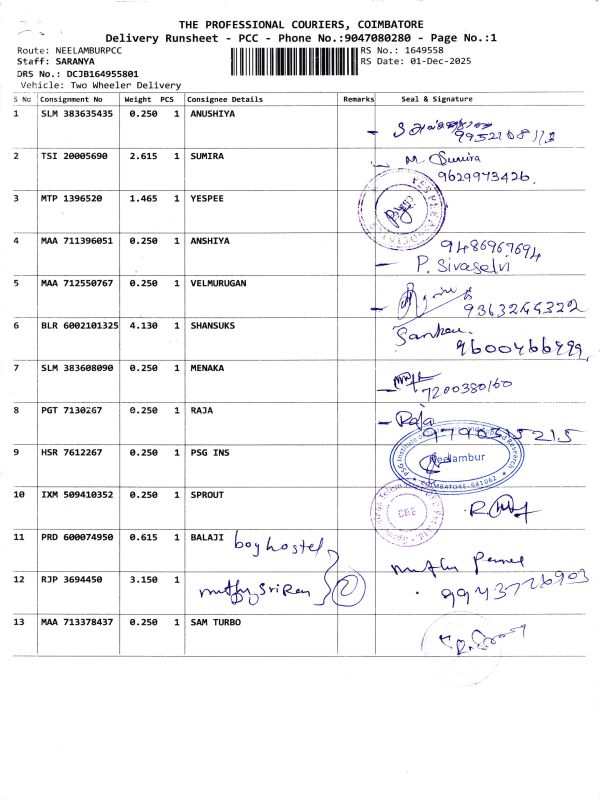 THE PROFESSIONAL COURIERS, COIMBATORE
Delivery Runsheet - PCC - Phone No.:9047080280 - Page No.:1
Route: NEELAMBURPCC RS No.: 1649558
Staff: SARANYA RS Date: 01-Dec-2025
DRS No.: DCJB164955801
Vehicle: Two Wheeler Delivery
S No Consignment No Weight PCS Consignee Details Remarks Seal & Signature
1 SLM 383635435 0.250 1 ANUSHIYA
2 TSI 20005690 2.615 1 SUMIRA M Sumira
9629973426.
3 MTP 1396520 1.465 1 YESPEE
4 MAA 711396051 0.250 1 ANSHIYA 9486967694
P. Sivaselvi
5 MAA 712550767 0.250 1 VELMURUGAN
9363244322
6 BLR 6002101325 4.130 1 SHANSUKS
9600466499
7 SLM 383608090 0.250 1 MENAKA
7200380160
8 PGT 7130267 0.250 1 RAJA Raja
9790535215
9 HSR 7612267 0.250 1 PSG INS Neelambur
COIMBATORE-641062
10 IXM 509410352 0.250 1 SPROUT
11 PRD 600074950 0.615 1 BALAJI boy hostel
12 RJP 3694450 3.150 1 2
9943726903
13 MAA 713378437 0.250 1 SAM TURBO